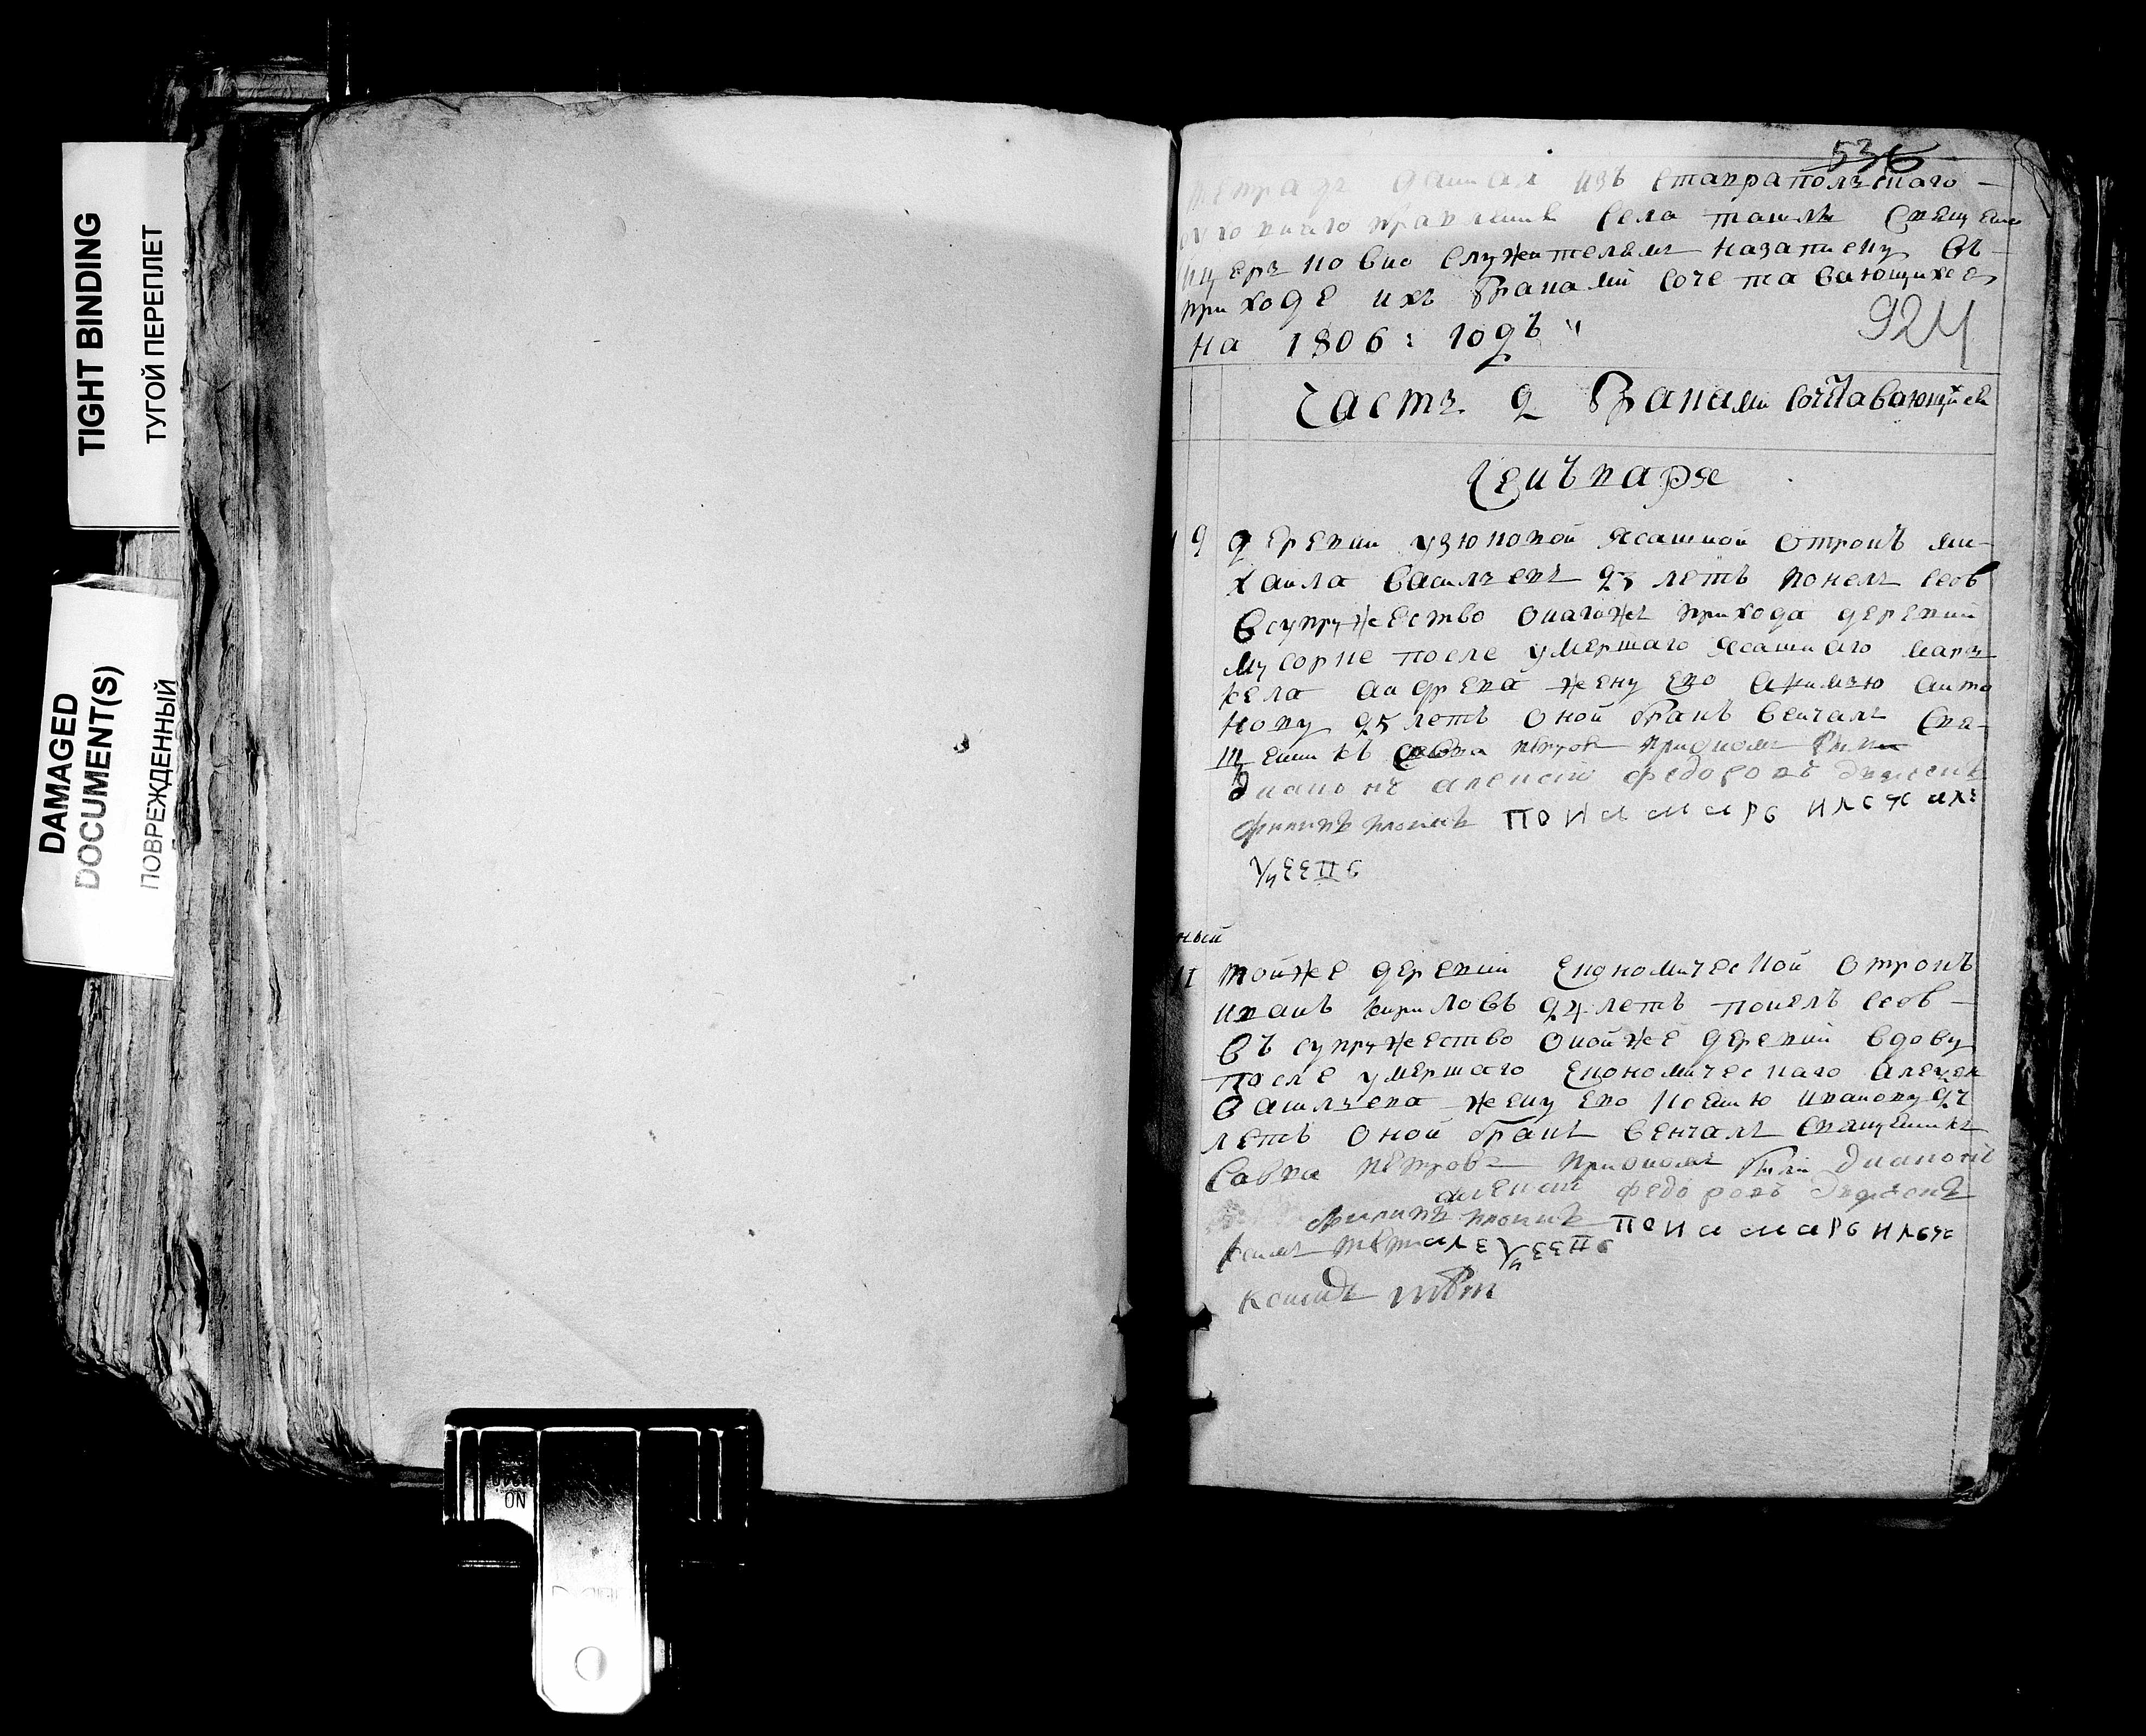 TIGHT BINDING
ТУГОЙ ПЕРЕПЛЕТ
DAMAGED
DOCUMENT(S)
ПОВРЕЖДЕННЫЙ
536
изъ ставрапольскаго
правления села ташлы
церьковно служителямъ на записку въ
приходе ихъ браками сочетавающихся
на 1806: годъ
924
Часть 2 браками сочетавающихся
Генъваря
9 деревни узюковой ясашной отрокъ ми-
хаила васильевъ 23 летъ понелъ себѣ
всупружество онагожъ прихода деревни
мусорке после умершаго ясашнаго марь
кела андрева жену ево антo
нову 25 летъ оной бракъ венчалъ свя-
щенникъ савва петровъ приономъ были
диаконъ алексий федоровъ дьячекъ
филипъ понамарь
тойже деревни економической отрокъ
иванъ кириловъ 24 летъ понелъ себѣ
въ супружество онойже деревни вдову
после умершаго економическаго алексея
васильева жену ево ксению иванову 27
летъ оной бракъ венчалъ священникъ
Савва петровъ приономъ были диаконъ
алексий федоровъ дьячекъ
филипъ понамарь